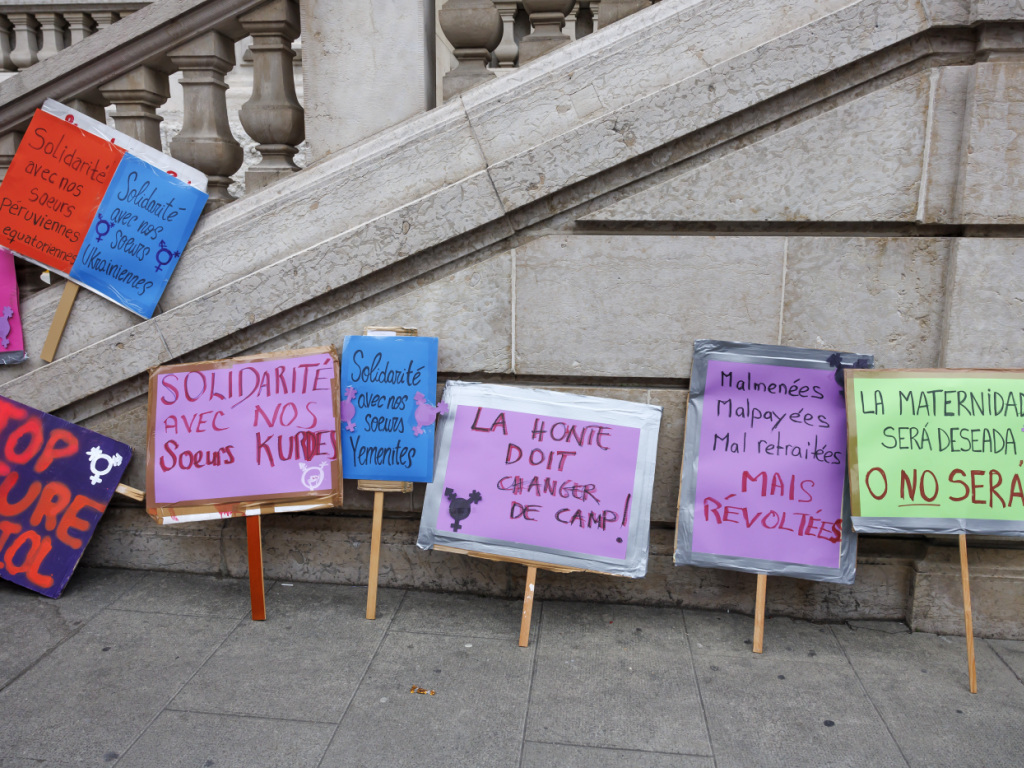 Solidarité
avec nos
soeurs
Péruviennes
equatoriennes
Solidarité
avec nos
soeurs
Ukrainiennes
TOP
URE
IOL
SOLIDARITÉ
AVEC NOS
Soeurs KURDES
Solidarité
avec nos
soeurs
Yemenites
LA HONTE
DOIT
CHANGER
DE CAMP!
Malmenées
Malpayées
Mal retraitées
MAIS
RÉVOLTÉES
LA MATERNIDAD
SERÁ DESEADA
O NO SERÁ